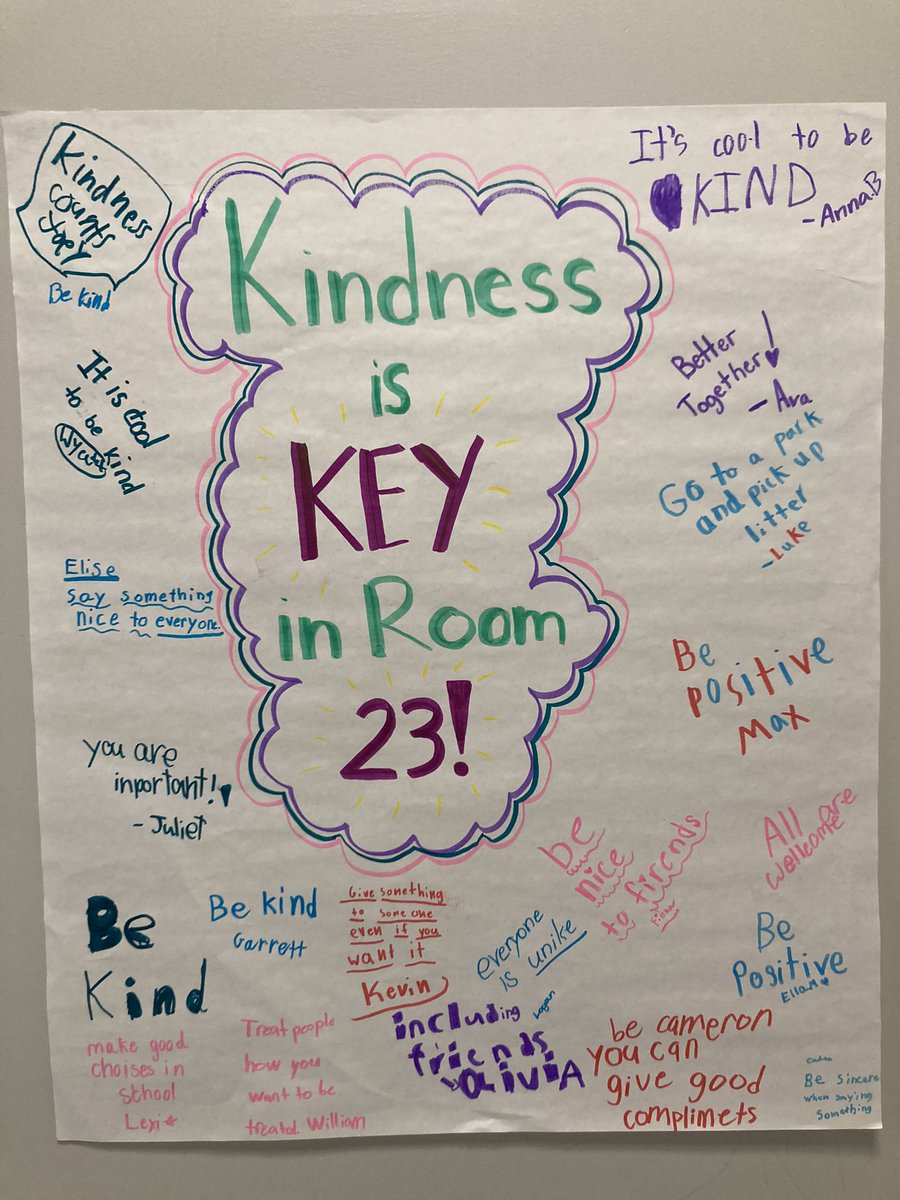 Kindness
is
KEY
in Room
23!
Kindness
counts
Joey
Be kind
It's cool to be
KIND
- Anna.B
It is cool
to be kind
Wyatt
Better
Together!
- Ava
Go to a park
and pick up
litter
- Luke
Elise
say something
nice to everyone.
Be
positive
Max
you are
inportant!
- Juliet
be
nice
to firends
Fiona
All are
wellcome
Be
Kind
Be kind
Garrett
Give something
to some one
even if you
want it
Kevin
everyone
is unike
Logan
Be
Positive
Ella.M
make good
choises in
sthool
Lexi
Treat people
how you
want to be
treatal William
including
friends
Olivia
be cameron
you can
give good
complimets
Be sincere
when saying
something